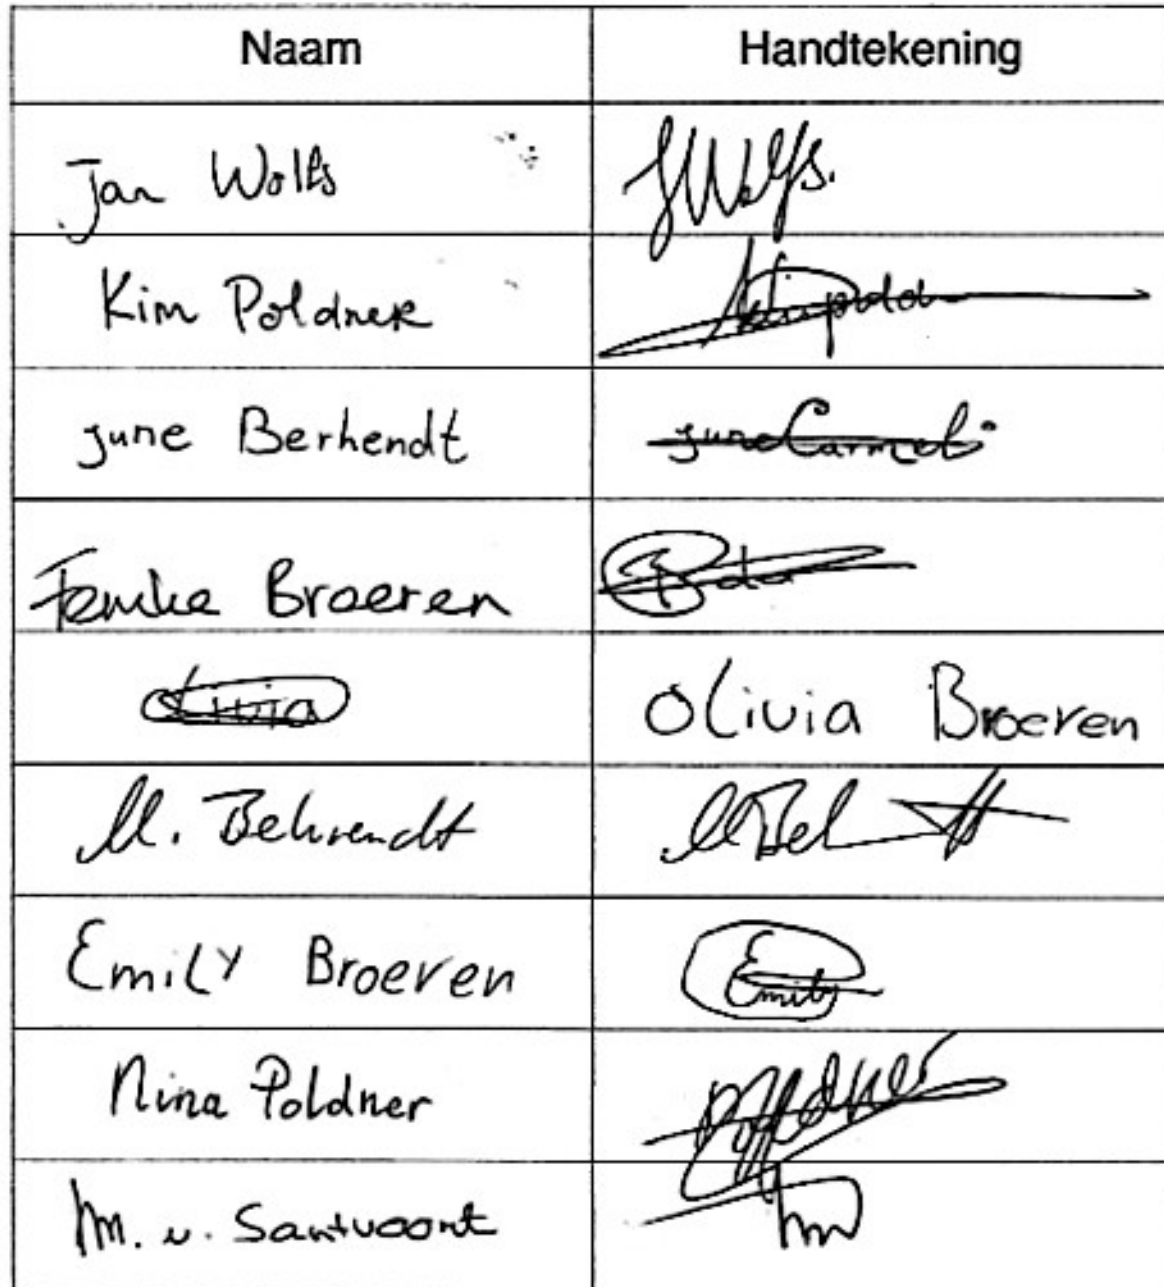 Naam Handtekening
Jan Wolfs JWolfs.
Kim Poldner
June Berhendt June Carmel
Femke Broeren
Olivia Olivia Broeren
M. Behrendt
Emily Broeren Emily
Nina Poldner Poldner
M. v. Santvoort